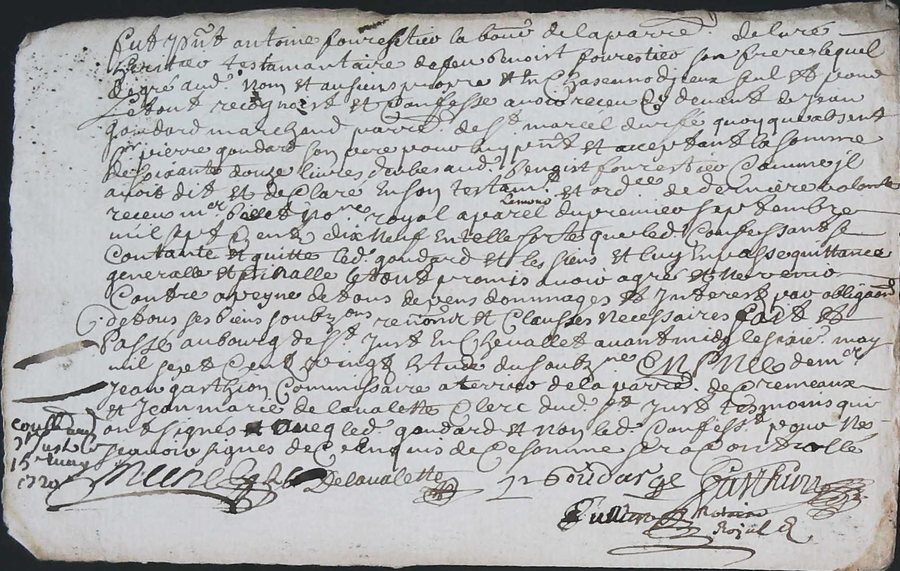 fut p̃nt antoine fourestier labour de la parre de luré
heritier testamentaire de feu benoist fourestier son frere lequel
de gré aud. nom et au sien propre et en chascun d'jceux seul et pour
le tout recognoist et confesse avoir receu cy devant de jean
goudard marchand parre de st marcel durfé quoyque absent
sr pierre goudard son pere pour luy p̃nt et acceptant la somme
de soixante douze livres deubes aud. benoist fourestier comme jl
avoit dit et declaré en son testam. et ord.ce de derniere volonté
receu mr notre royal a parel du premier septembre
mil sept cent dix neuf en telle sorte que led. confessant se
contante et quitte led. goudard et les siens et luy en passe quittance
generalle et finalle le tout promis avoir agreé et ne venir
contre a peyne de tous depens dommages et jnterest par obligaon
de tous ses biens soubzons renonsr et clauses necessaires fait et
passé au bourg de st just en chevallet avant midy le may
mil sept cent vingt et du soubzne en p̃nce de mr
jean parthion commissaire a terrier de la parre de cremeaux
et jean marie delavalette clerc dud. st just tesmoins qui
ont signes avecq led. goudard et non led. confesst pour ne
scavoir signes de ce enquis de ce somme
conllé aud
st just le
15e may
1720
Delavalette J Goudard
notaire
Royal